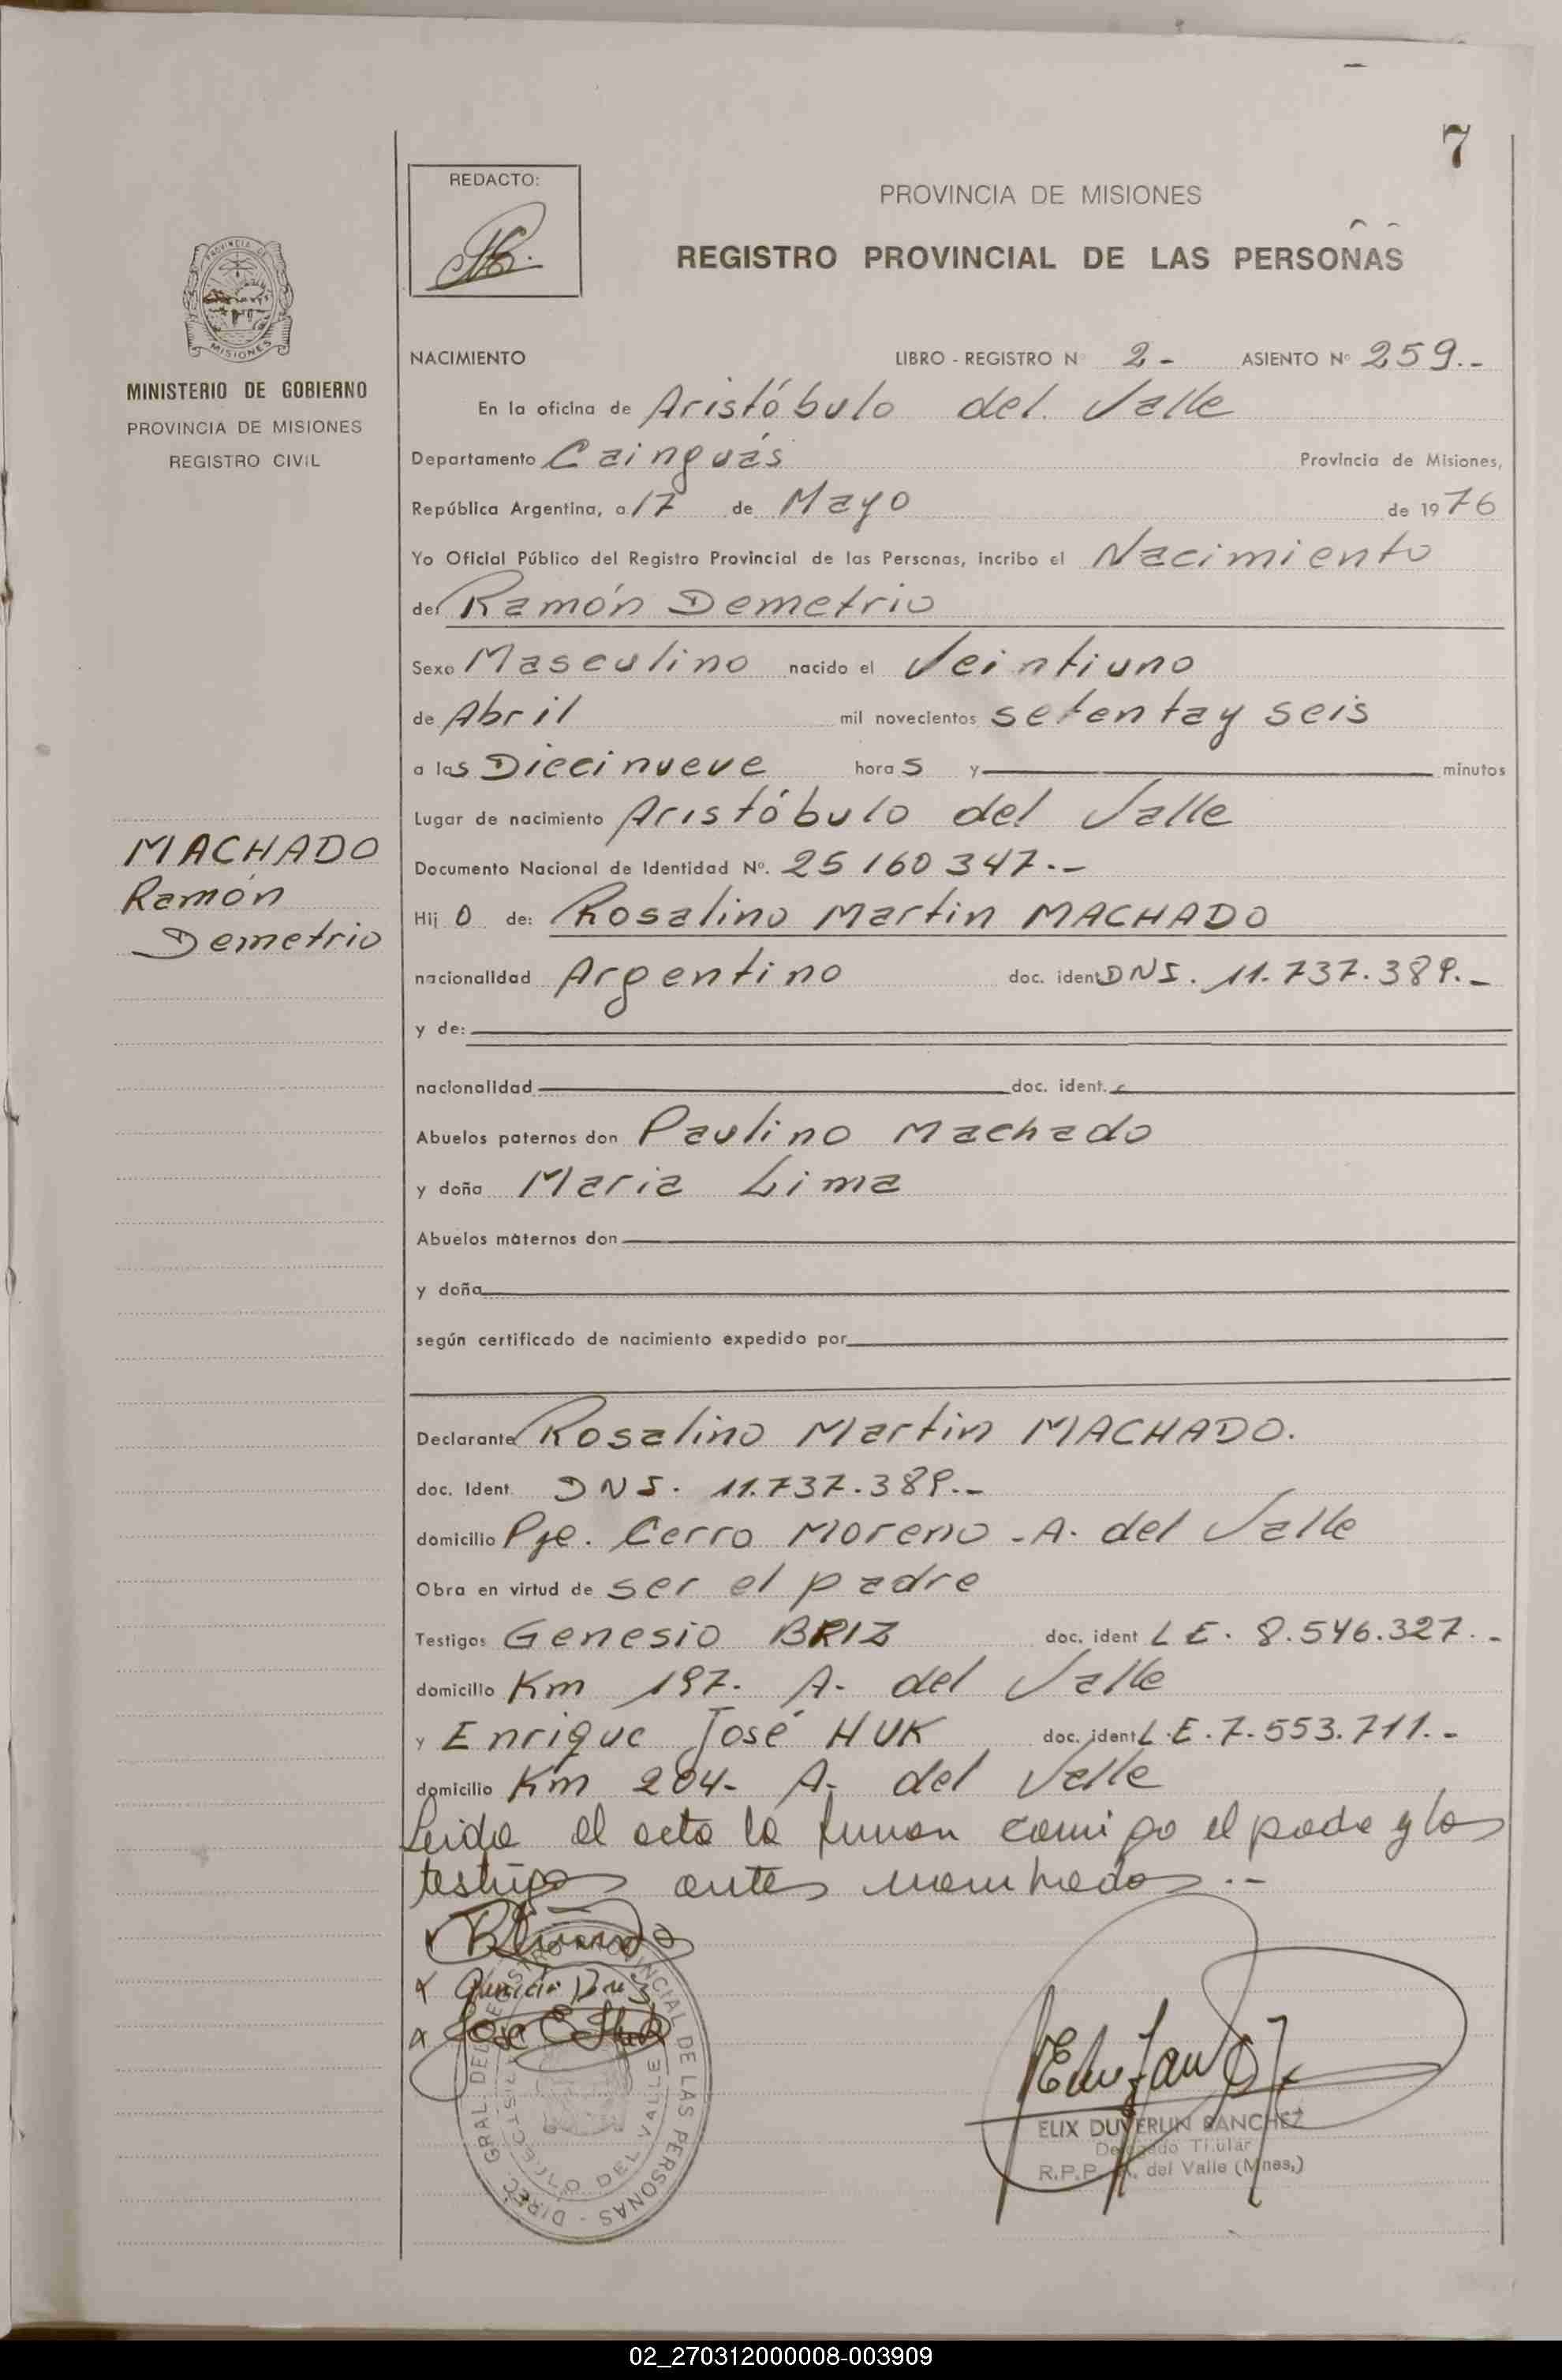 7
REDACTO:
PROVINCIA DE MISIONES
REGISTRO PROVINCIAL DE LAS PERSONAS
PROVINCIA DE
MISIONES
MINISTERIO DE GOBIERNO
PROVINCIA DE MISIONES
REGISTRO CIVIL
NACIMIENTO LIBRO - REGISTRO N 2- ASIENTO Nº 259.-
En la oficina de Aristóbulo del Valle
Departamento Cainguás Provincia de Misiones,
República Argentina, a 17 de Mayo de 1976
Yo Oficial Público del Registro Provincial de las Personas, incribo el Nacimiento
de: Ramón Demetrio
Sexo Masculino nacido el Veintiuno
de Abril mil novecientos setenta y seis
a las Diecinueve horas y minutos
Lugar de nacimiento Aristóbulo del Valle
Documento Nacional de Identidad Nº. 25 160 347.-
MACHADO
Ramón
Demetrio
Hij o de: Rosalino Martin MACHADO
nacionalidad Argentino doc. ident DNI. 11.737.389.-
y de:
nacionalidad doc. ident.
Abuelos paternos don Paulino Machado
y doña Maria Lima
Abuelos maternos don
y doña
según certificado de nacimiento expedido por
Declarante Rosalino Martin MACHADO.
doc. Ident. DNI. 11.737.389.-
domicilio Pje. Cerro Moreno - A. del Valle
Obra en virtud de ser el padre
Testigos Genesio BRIZ doc. ident L E. 8.546.327.-
domicilio Km 197. A. del Valle
y Enrique José HUK doc. ident L.E. 7.553.711.-
domicilio Km 204- A. del Valle
Leida el acta la firman comigo el padre y los
testigos antes nombrados.-
DIREC. GRAL. DEL REGISTRO PROVINCIAL DE LAS PERSONAS
DEL VALLE
ELIX DUVERLIN SANCHEZ
Delegado Titular
R.P.P. A. del Valle (Mnes.)
02_270312000008-003909